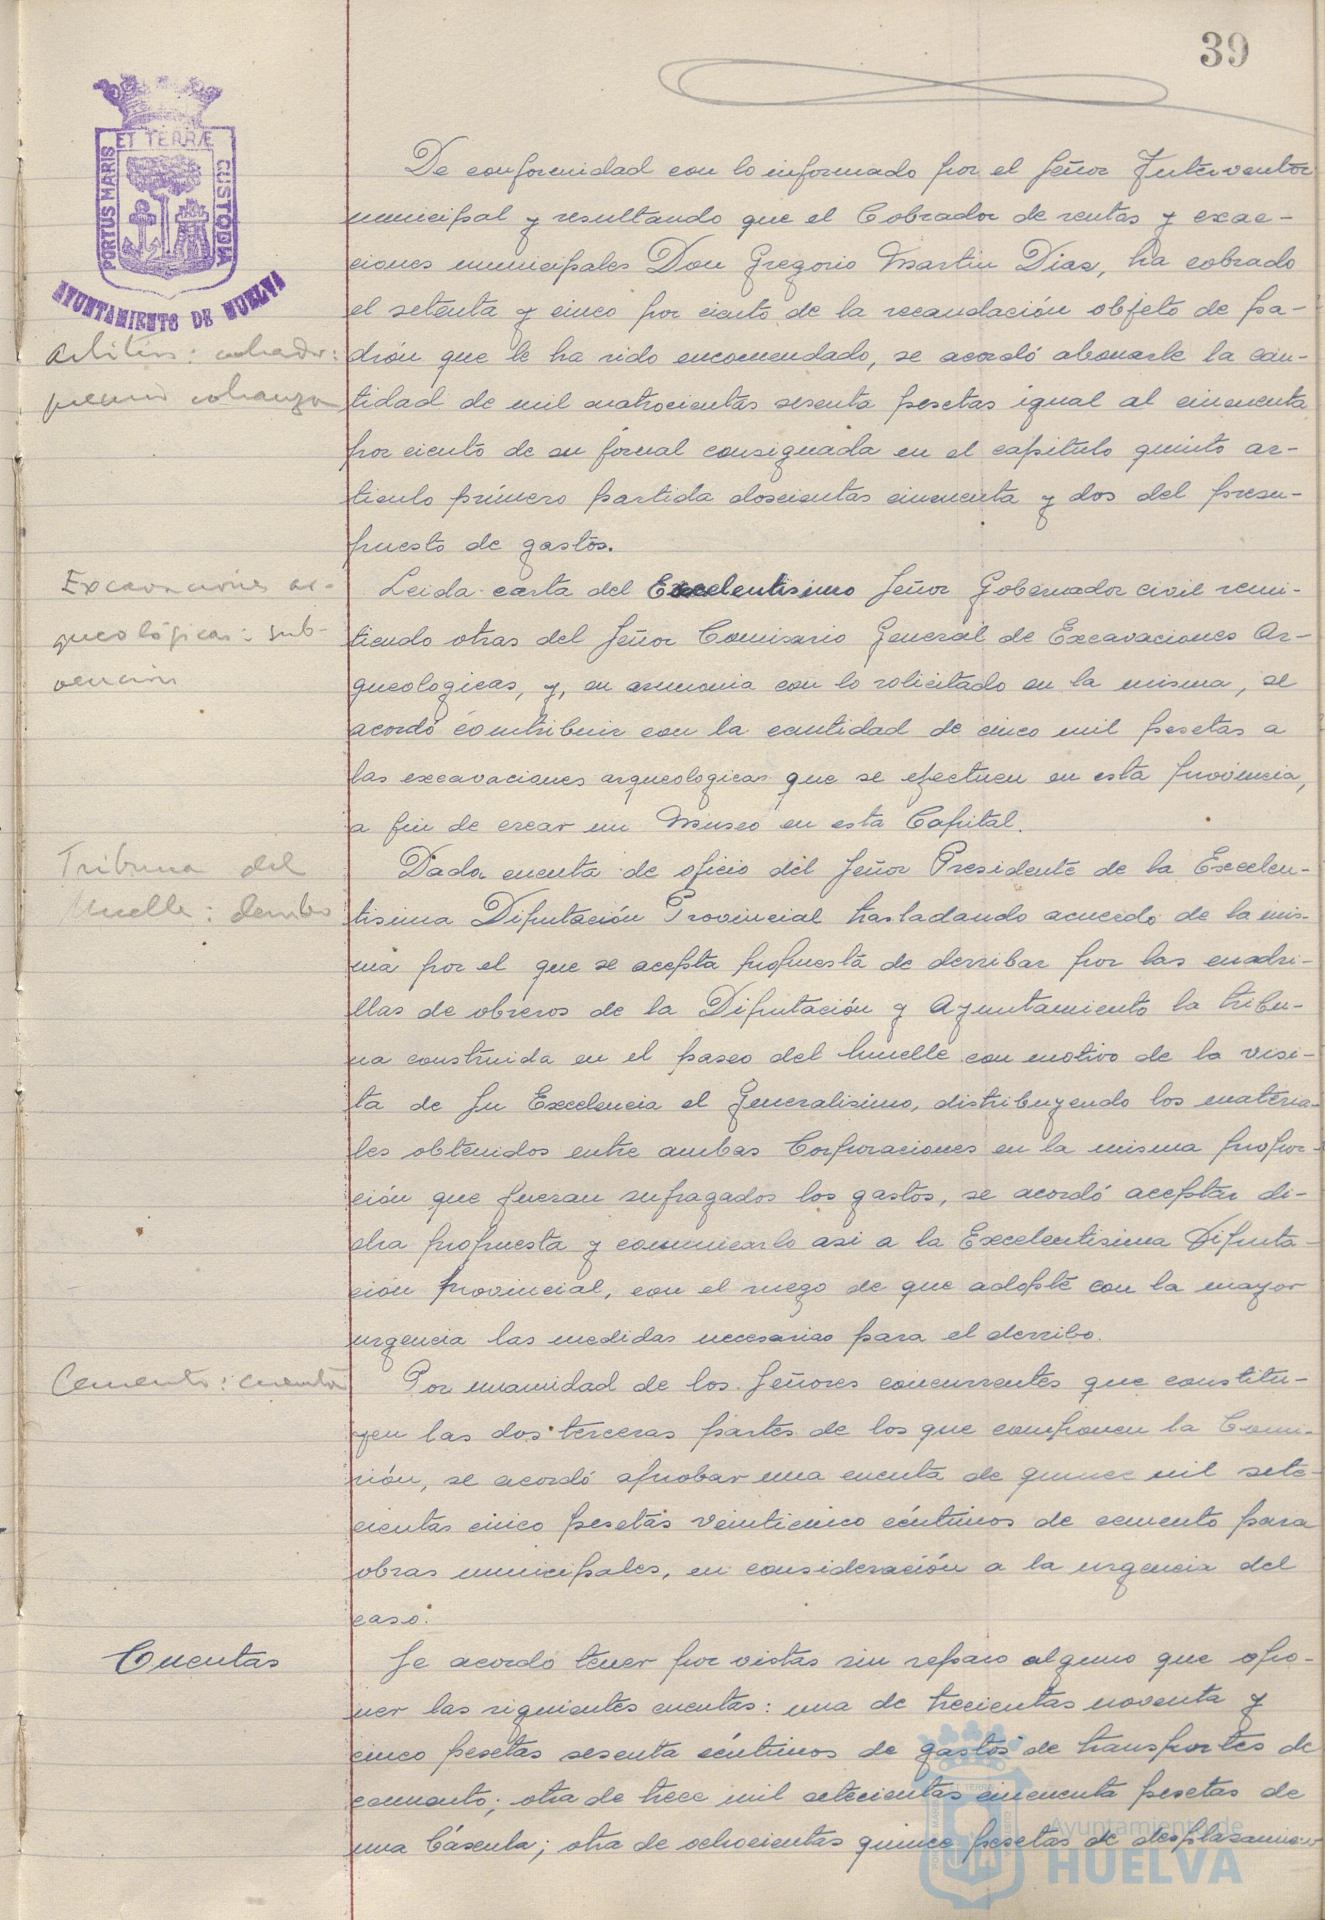 39
ET TERRÆ
PORTUS MARIS
CUSTODIA
AYUNTAMIENTO DE HUELVA
De conformidad con lo informado por el Señor Interventor
municipal y resultando que el Cobrador de rentas y exac-
ciones municipales Don Gregorio Martin Dias, ha cobrado
el setenta y cinco por ciento de la recaudación objeto de pa-
Arbitrios: cobrador:
drón que le ha sido encomendado, se acordó abonarle la can-
premio cobranza
tidad de mil cuatrocientas sesenta pesetas igual al cincuenta
por ciento de su jornal consignada en el capitulo quinto ar-
ticulo primero partida doscientas cincuenta y dos del presu-
puesto de gastos.
Excavaciones ar-
queológicas: sub-
vención
Leida carta del Excelentisimo Señor Gobernador civil remi-
tiendo otras del Señor Comisario General de Excavaciones Ar-
queologicas, y, en armonia con lo solicitado en la misma, se
acordó contribuir con la cantidad de cinco mil pesetas a
las excavaciones arqueologicas que se efectuen en esta provincia,
a fin de crear un Museo en esta Capital.
Tribuna del
Muelle: derribo
Dada cuenta de oficio del Señor Presidente de la Excelen-
tisima Diputación Provincial trasladando acuerdo de la mis-
ma por el que se acepta propuesta de derribar por las cuadri-
llas de obreros de la Diputación y Ayuntamiento la tribu-
na construida en el paseo del muelle con motivo de la visi-
ta de Su Excelencia el Generalisimo, distribuyendo los materia-
les obtenidos entre ambas Corporaciones en la misma propor-
ción que fueran sufragados los gastos, se acordó aceptar di-
cha propuesta y comunicarlo asi a la Excelentisima Diputa-
ción Provincial, con el ruego de que adopte con la mayor
urgencia las medidas necesarias para el derribo.
Cemento: cuenta
Por unanimidad de los Señores concurrentes que constitu-
yen las dos terceras partes de los que componen la Comi-
sión, se acordó aprobar una cuenta de quince mil sete-
cientas cinco pesetas veinticinco céntimos de cemento para
obras municipales, en consideración a la urgencia del
caso.
Cuentas
Se acordó tener por vistas sin reparo alguno que opo-
ner las siguientes cuentas: una de trecientas noventa y
cinco pesetas sesenta céntimos de gastos de transportes de
cemento; otra de trece mil setecientas cincuenta pesetas de
una Báscula; otra de ochocientas quince pesetas de desplazamien-
Ayuntamiento de
HUELVA